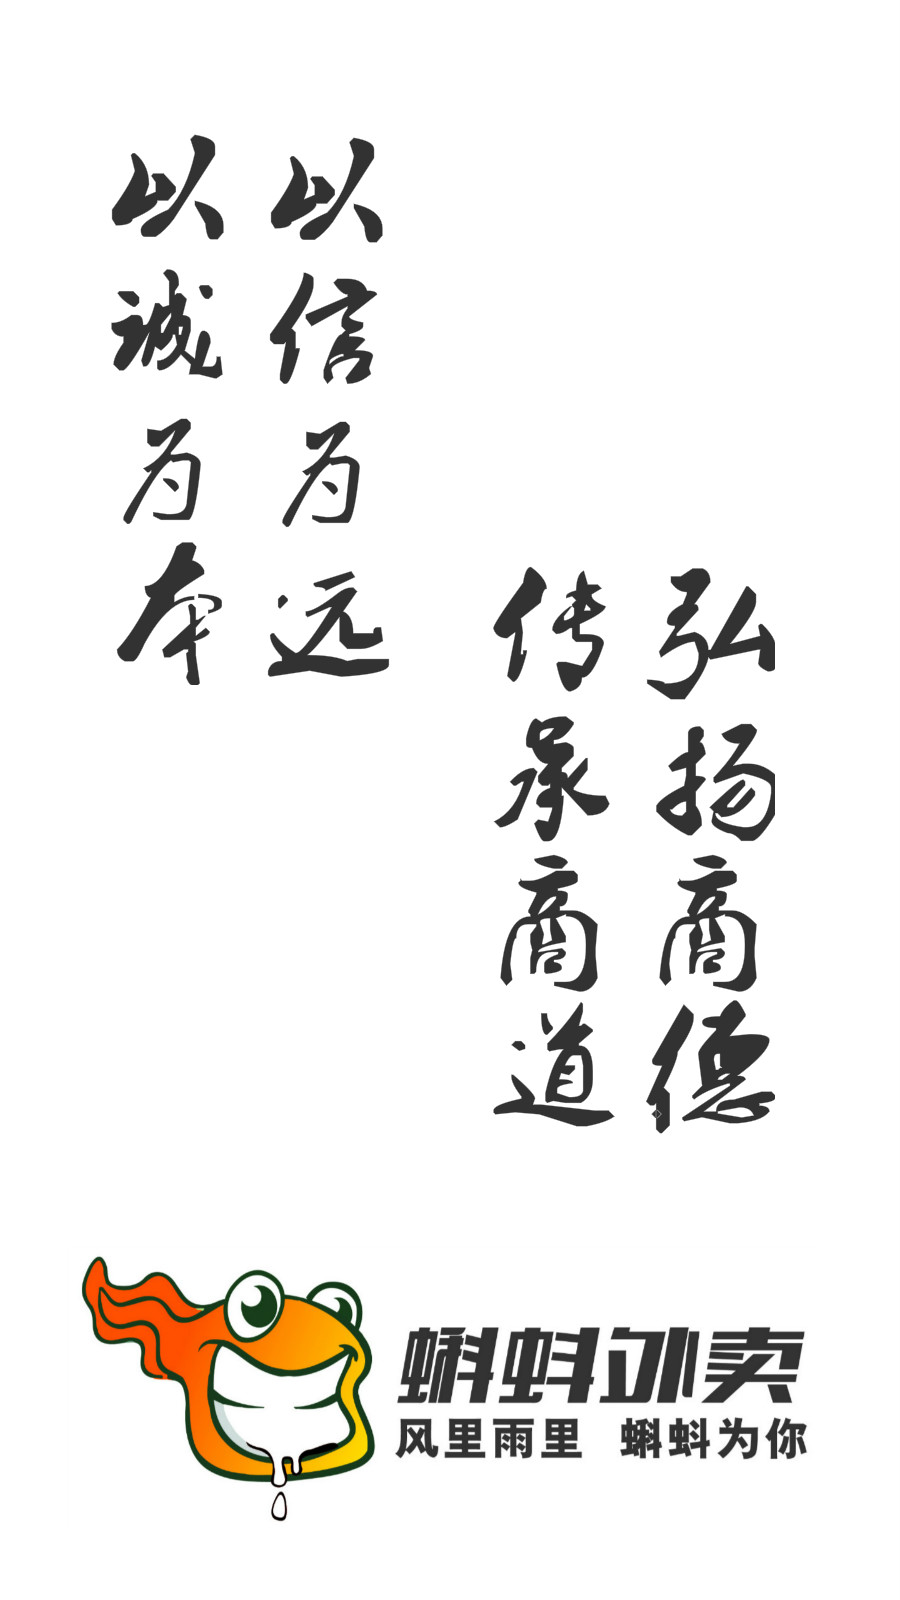 以诚为本
以信为远
传承商道
弘扬商德
蝌蚪外卖
风里雨里 蝌蚪为你